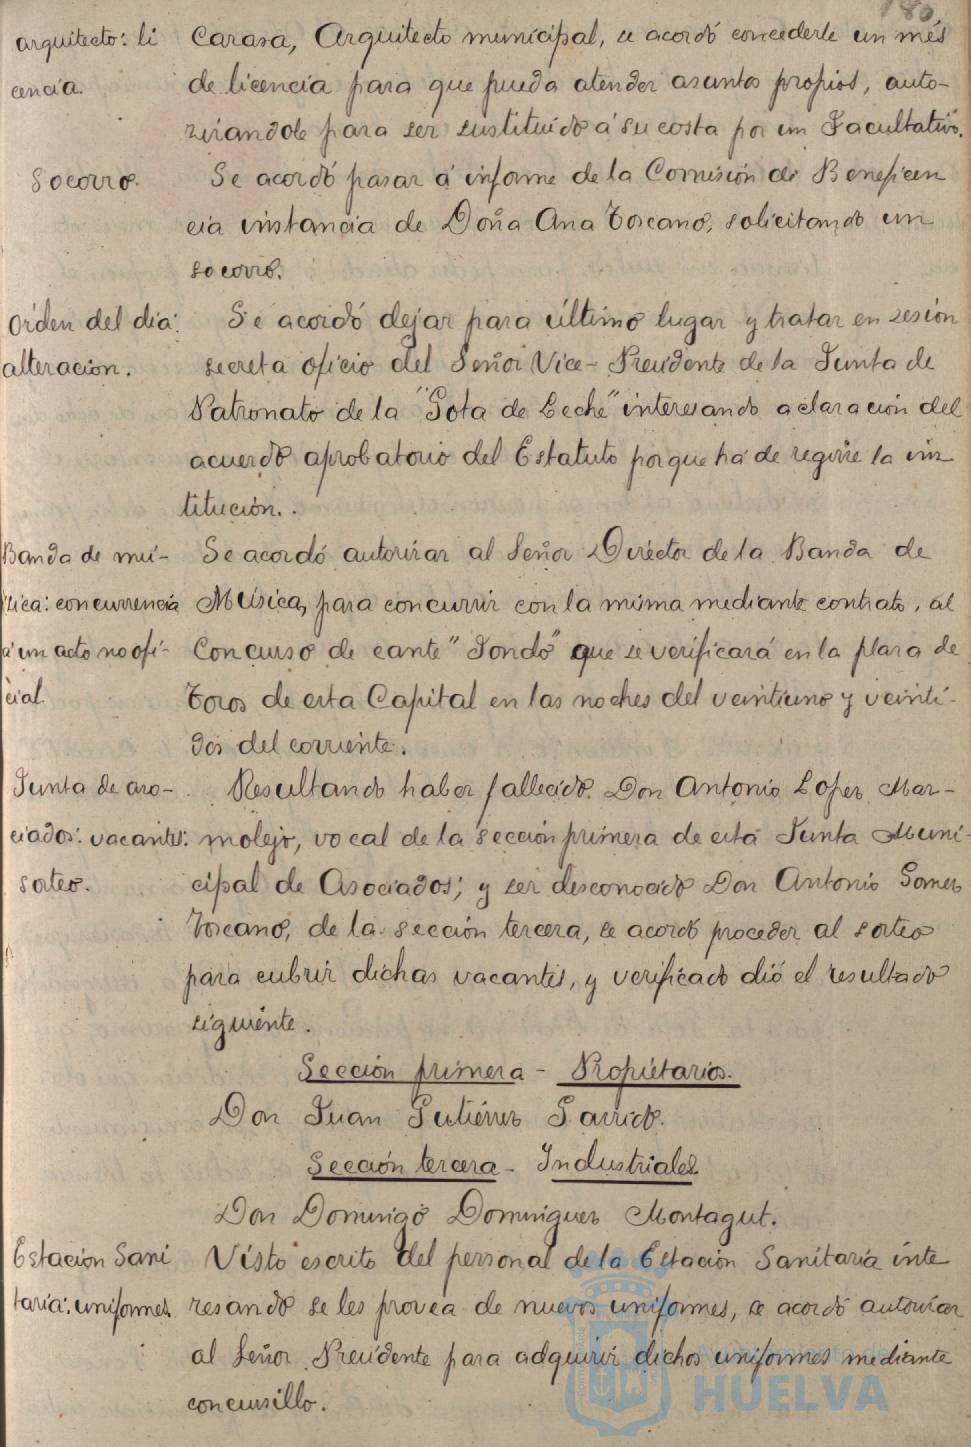 180
arquitecto: li
cencia.
Carasa, Arquitecto municipal, se acordó concederle un més
de licencia para que pueda atender asuntos propios, auto-
rizandole para ser sustituido á su costa por un Facultativo.
Socorro.
Se acordó pasar á informe de la Comisión de Beneficen
cia instancia de Doña Ana Toscano, solicitando un
socorro.
Orden del día:
alteración.
Se acordó dejar para último lugar y tratar en sesión
secreta oficio del Señor Vice-Presidente de la Junta de
Patronato de la "Gota de Leche" interesando aclaración del
acuerdo aprobatorio del Estatuto porque há de regirse la ins
titución.
Banda de mú-
sica: concurrencia
á un acto no ofi-
cial
Se acordó autorizar al Señor Director de la Banda de
Música, para concurrir con la misma mediante contrato, al
Concurso de cante "Jondo" que se verificará en la plaza de
Toros de esta Capital en las noches del veintiuno y veinti-
dos del corriente.
Junta de aso-
ciados: vacantes:
sorteo.
Resultando haber fallecido Don Antonio Lopez Mar-
molejo, vocal de la sección primera de esta Junta Muni-
cipal de Asociados; y ser desconocido Don Antonio Gomez
Toscano, de la sección tercera, se acordó proceder al sorteo
para cubrir dichas vacantes, y verificado dió el resultado
siguiente.
Sección primera - Propietarios.
Don Juan Gutiérrez Garrido.
Sección tercera - Industriales
Don Domingo Dominguez Montagut.
Estación Sani
taria: uniformes.
Visto escrito del personal de la Estación Sanitaria inte
resando se les provea de nuevos uniformes, se acordó autorizar
al Señor Presidente para adquirir dichos uniformes mediante
concursillo.
Ayuntamiento de
HUELVA